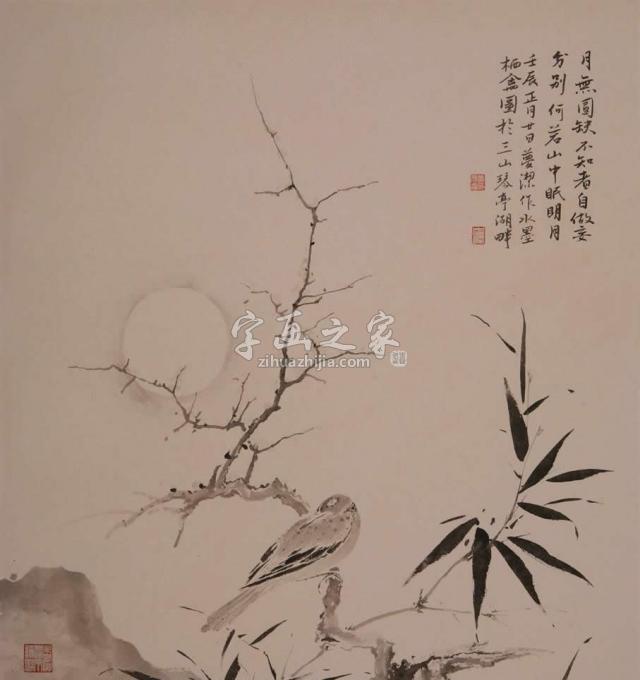 月無圓缺不知者自做妄
分别何若山中眠明月
壬辰正月廿日夢潔作水墨
栖禽圖於三山琴亭湖畔
字画之家
zihuazhijia.com